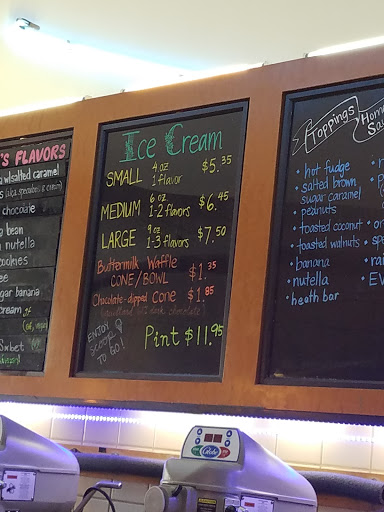 'S FLAVORS
w/salted caramel
chocolate
bean
nutella
cookies
banana
Sorbet
Ice Cream
SMALL 4 oz 1 flavor $5.35
MEDIUM 6 oz 1-2 flavors $6.45
LARGE 9 oz 1-3 flavors $7.50
Buttermilk Waffle
CONE/BOWL $1.35
Chocolate-dipped CONE $1.85
ENJOY
SCOOP
TO GO!
Pint $11.95
Toppings
• hot fudge
• salted brown
sugar caramel
• peanuts
• toasted coconut
• toasted walnuts
• banana
• nutella
• heath bar